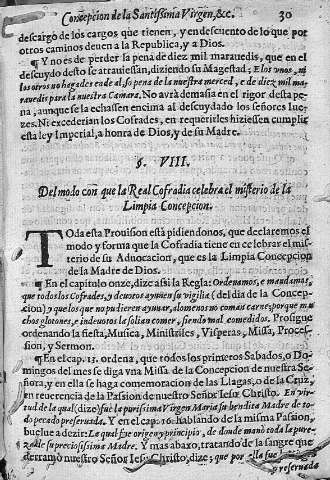 Concepcion de la Santissima Virgen, &c. 30
descargo de los cargos que tienen, y en descuento de lo que por
otros caminos deuen a la Republica, y a Dios.
¶ Y no es de perder la pena de diez mil marauedis, que en el
descuydo desto se atrauiessan, diziendo su Magestad; E los vnos, ni
los otros no hagades ende al, so pena de la nuestra merced, e de diez mil ma-
rauedis para la nuestra Camara. No avrà demasia en el rigor desta pe-
na, aunque se la echassen encima al descuydado los señores Iue-
zes. Ni excederian los Cofrades, en requerirles hiziessen cumplir
esta ley Imperial, a honra de Dios, y de su Madre.
§. VIII.
Del modo con que la Real Cofradia celebra el misterio de la
Limpia Concepcion.
Toda esta Prouision està pidiendonos, que declaremos el
modo y forma que la Cofradia tiene en celebrar el mis-
terio de su Aduocacion, que es la Limpia Concepcion
de la Madre de Dios.
¶ En el capitulo onze, dize assi la Regla: Ordenamos, e mandamos,
que todos los Cofrades, y deuotos ayunen su vigilia (del dia de la Concep-
cion) y que los que no pudieren ayunar, alomenos no coman carne; porque mu-
chos glotones, e indeuotos la solian comer, siendo mal comedidos. Prosigue
ordenando la fiesta, Musica, Ministriles, Visperas, Missa, Proces-
sion, y Sermon.
¶ En el cap. 13. ordena, que todos los primeros Sabados, o Do-
mingos del mes se diga vna Missa de la Concepcion de nuestra Se-
ñora, y en ella se haga comemoracion de las Llagas, o de la Cruz,
en reuerencia de la Passion de nuestro Señor Iesu Christo. En vir-
tud de la qual (dize) fue la purissima Virgen Maria su bendita Madre de to-
do pecado preseruada. Y en el cap. 16. hablando de la misma Passion,
buelue a dezir: La qual fue origen y principio, de donde manò toda la pure-
za de su preciosissima Madre. Y mas abaxo, tratando de la sangre que
derramò nuestro Señor Iesu Christo, dize; que por ella fue
preseruada